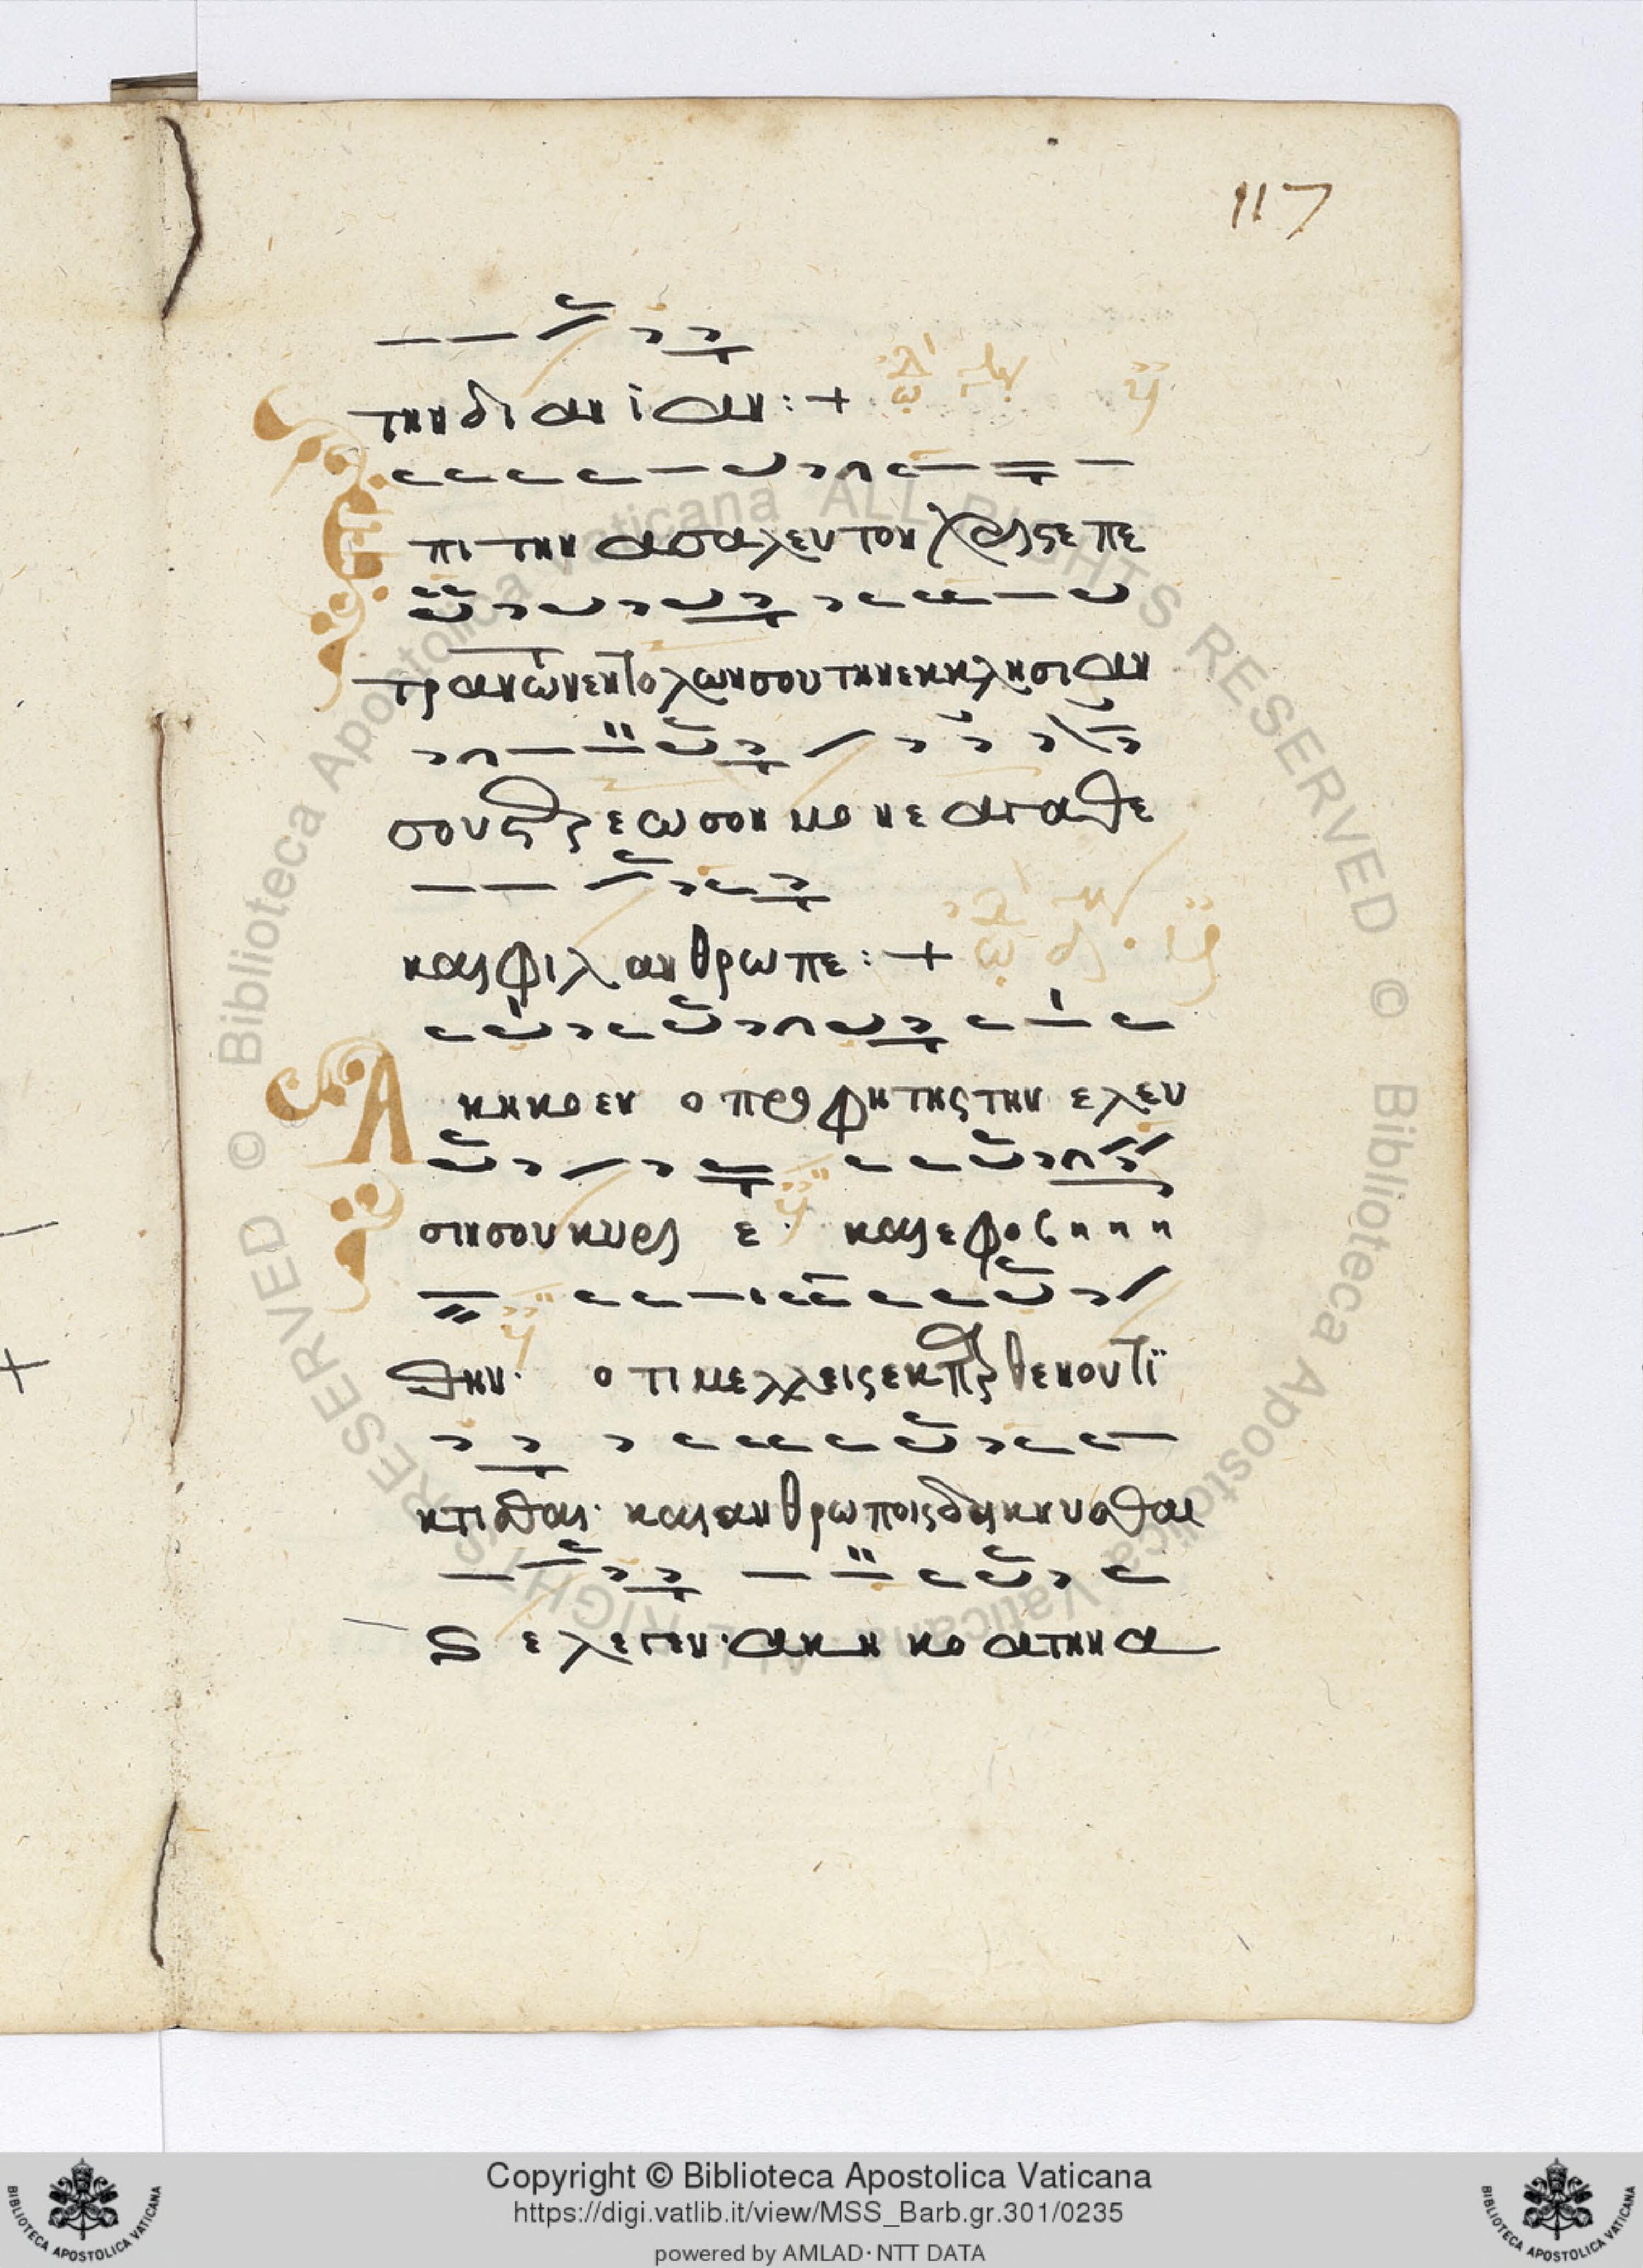 117
την διανιαν:+
Επι την ασαλευτον χε στε πε
τραν των εντολων σου την εκκλησιαν
σου στερεωσον μονε αγαθε
και φιλανθρωπε:+
Ακηκοεν ο προφητης την ελευ
σιν σου κυρι ε· και εφοβη η η
θην· οτι μελλεις εκ παρθενου τι
κτεσθαι· και ανθρωποις δεικνυσθαι
ς ελεγεν· ακηκοα την α
Copyright © Biblioteca Apostolica Vaticana
https://digi.vatlib.it/view/MSS_Barb.gr.301/0235
powered by AMLAD·NTT DATA
BIBLIOTECA APOSTOLICA VATICANA